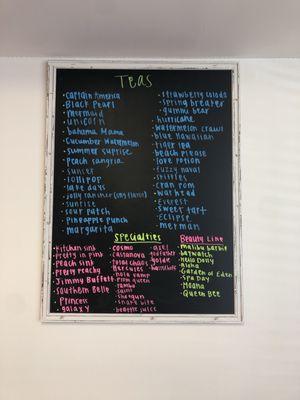 TEAS
• Captain America
• Black Pearl
• mermaid
• unicorn
• bahama mama
• Cucumber Watermelon
• summer suprise
• Peach sangria
• sunset
• lollipop
• lake days
• jolly rancher (any flavor)
• sunrise
• sour patch
• Pineapple Punch
• margarita
• strawberry colada
• spring breaker
• gummi bear
• hurricane
• watermelon crawl
• blue Hawaiian
• tiger tea
• beach please
• love potion
• fuzzy navel
• skittles
• cran pom
• war head
• Everest
• sweet tart
• Eclipse
• merman
Specialties
• Kitchen sink
• Pretty in pink
• Peach sink
• Pretty Peachy
• Jimmy Buffett
• Southern Belle
• Princess
• galaxy
• cosmo
• casanova
• total chaos
• hercules
• prom queen
• rambo
• shotgun
• snake bite
• beetle juice
• axel
• godfather
• goldie
Beauty Line
• malibu barbie
• baywatch
• Hello Dolly
• aloha
• Garden of Eden
• Spa Day
• Moana
• Queen Bee